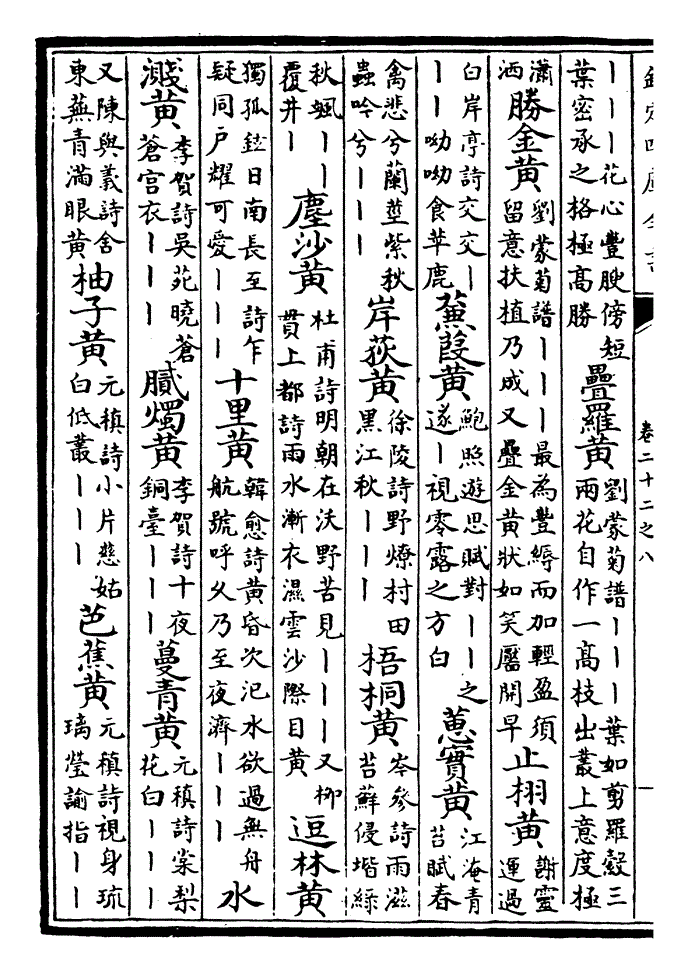 欽定四庫全書
卷二十二之八
一
｜｜｜花心豐腴傍短葉密承之格極高勝疊羅黃劉蒙菊譜｜｜｜葉如剪羅縠三兩花自作一高枝出叢上意度極
瀟洒勝金黃劉蒙菊譜｜｜｜最為豐縟而加輕盈須留意扶植乃成又疊金黃狀如笑靨開早止栩黃謝靈運過
白岸亭詩交交｜｜｜呦呦食苹鹿蒹葭黃鮑照遊思賦對｜｜之遂｜視零露之方白蔥實黃江淹青苔賦春
禽悲兮蘭莖紫秋蟲吟兮｜｜｜岸荻黃徐陵詩野燎村田黑江秋｜｜｜梧桐黃岑參詩雨滋苔蘚侵堦綠
秋颯｜｜覆井｜塵沙黃杜甫詩明朝在沃野苦見｜｜｜又柳貫上都詩雨水漸衣濕雲沙際目黃逗林黃
獨孤鉉日南長至詩乍疑同戶耀可愛｜｜｜十里黃韓愈詩黃昏次汜水欲過無舟航號呼乆乃至夜濟｜｜｜水
濺黃李賀詩吳苑曉蒼蒼宮衣｜｜｜膩燭黃李賀詩十夜銅臺｜｜｜蔓青黃元稹詩棠梨花白｜｜｜
又陳與義詩舍東蕪青滿眼黃柚子黃元稹詩小片慈姑白低叢｜｜｜芭蕉黃元稹詩視身琉璃瑩諭指｜｜